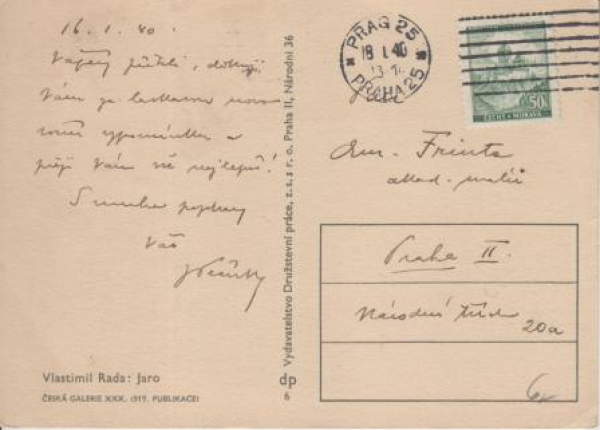 16.1.40.
Vážený příteli, děkuji
Vám za laskavou novo
roční vzpomínku a
přeji Vám vše nejlepší!
S mnoha pozdravy
Váš
Vydavatelstvo Družstevní práce, z. s. s r. o. Praha II, Národní 36
dp
6
Vlastimil Rada: Jaro
ČESKÁ GALERIE XXX. (919. PUBLIKACE)
PRAG 25
18 I. 40
PRAHA 25
50h
ČECHY A MORAVA
Frinta
akad. malíř
Praha II.
Národní třída
20a